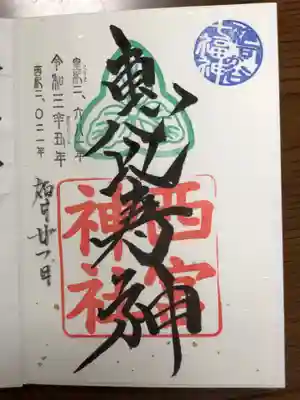 七福神
恵比寿神
西宮
神社
皇紀二、六八一年
令和三辛丑年
西紀二、〇二一年
廿一日